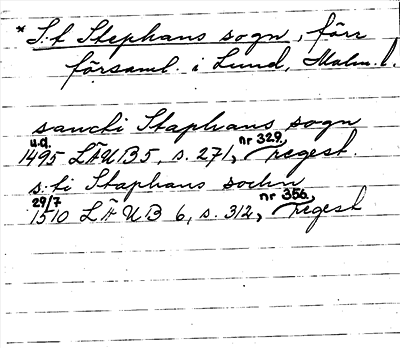 * S:t Stephans sogn, förr
församl. i Lund, Malm. l.
sancti Staphans sogn
u.d. nr 329,
1495 LÄUB 5, s. 271, regest.
s:ti Staphans sochn
29/7 nr 356,
1510 LÄUB 6, s. 312, regest